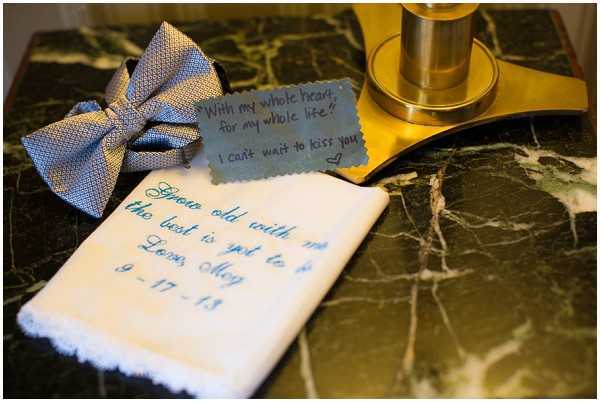 "With my whole heart,
for my whole life."
I can't wait to kiss you
Grow old with me
the best is yet to b
Love, Meg
9-17-13